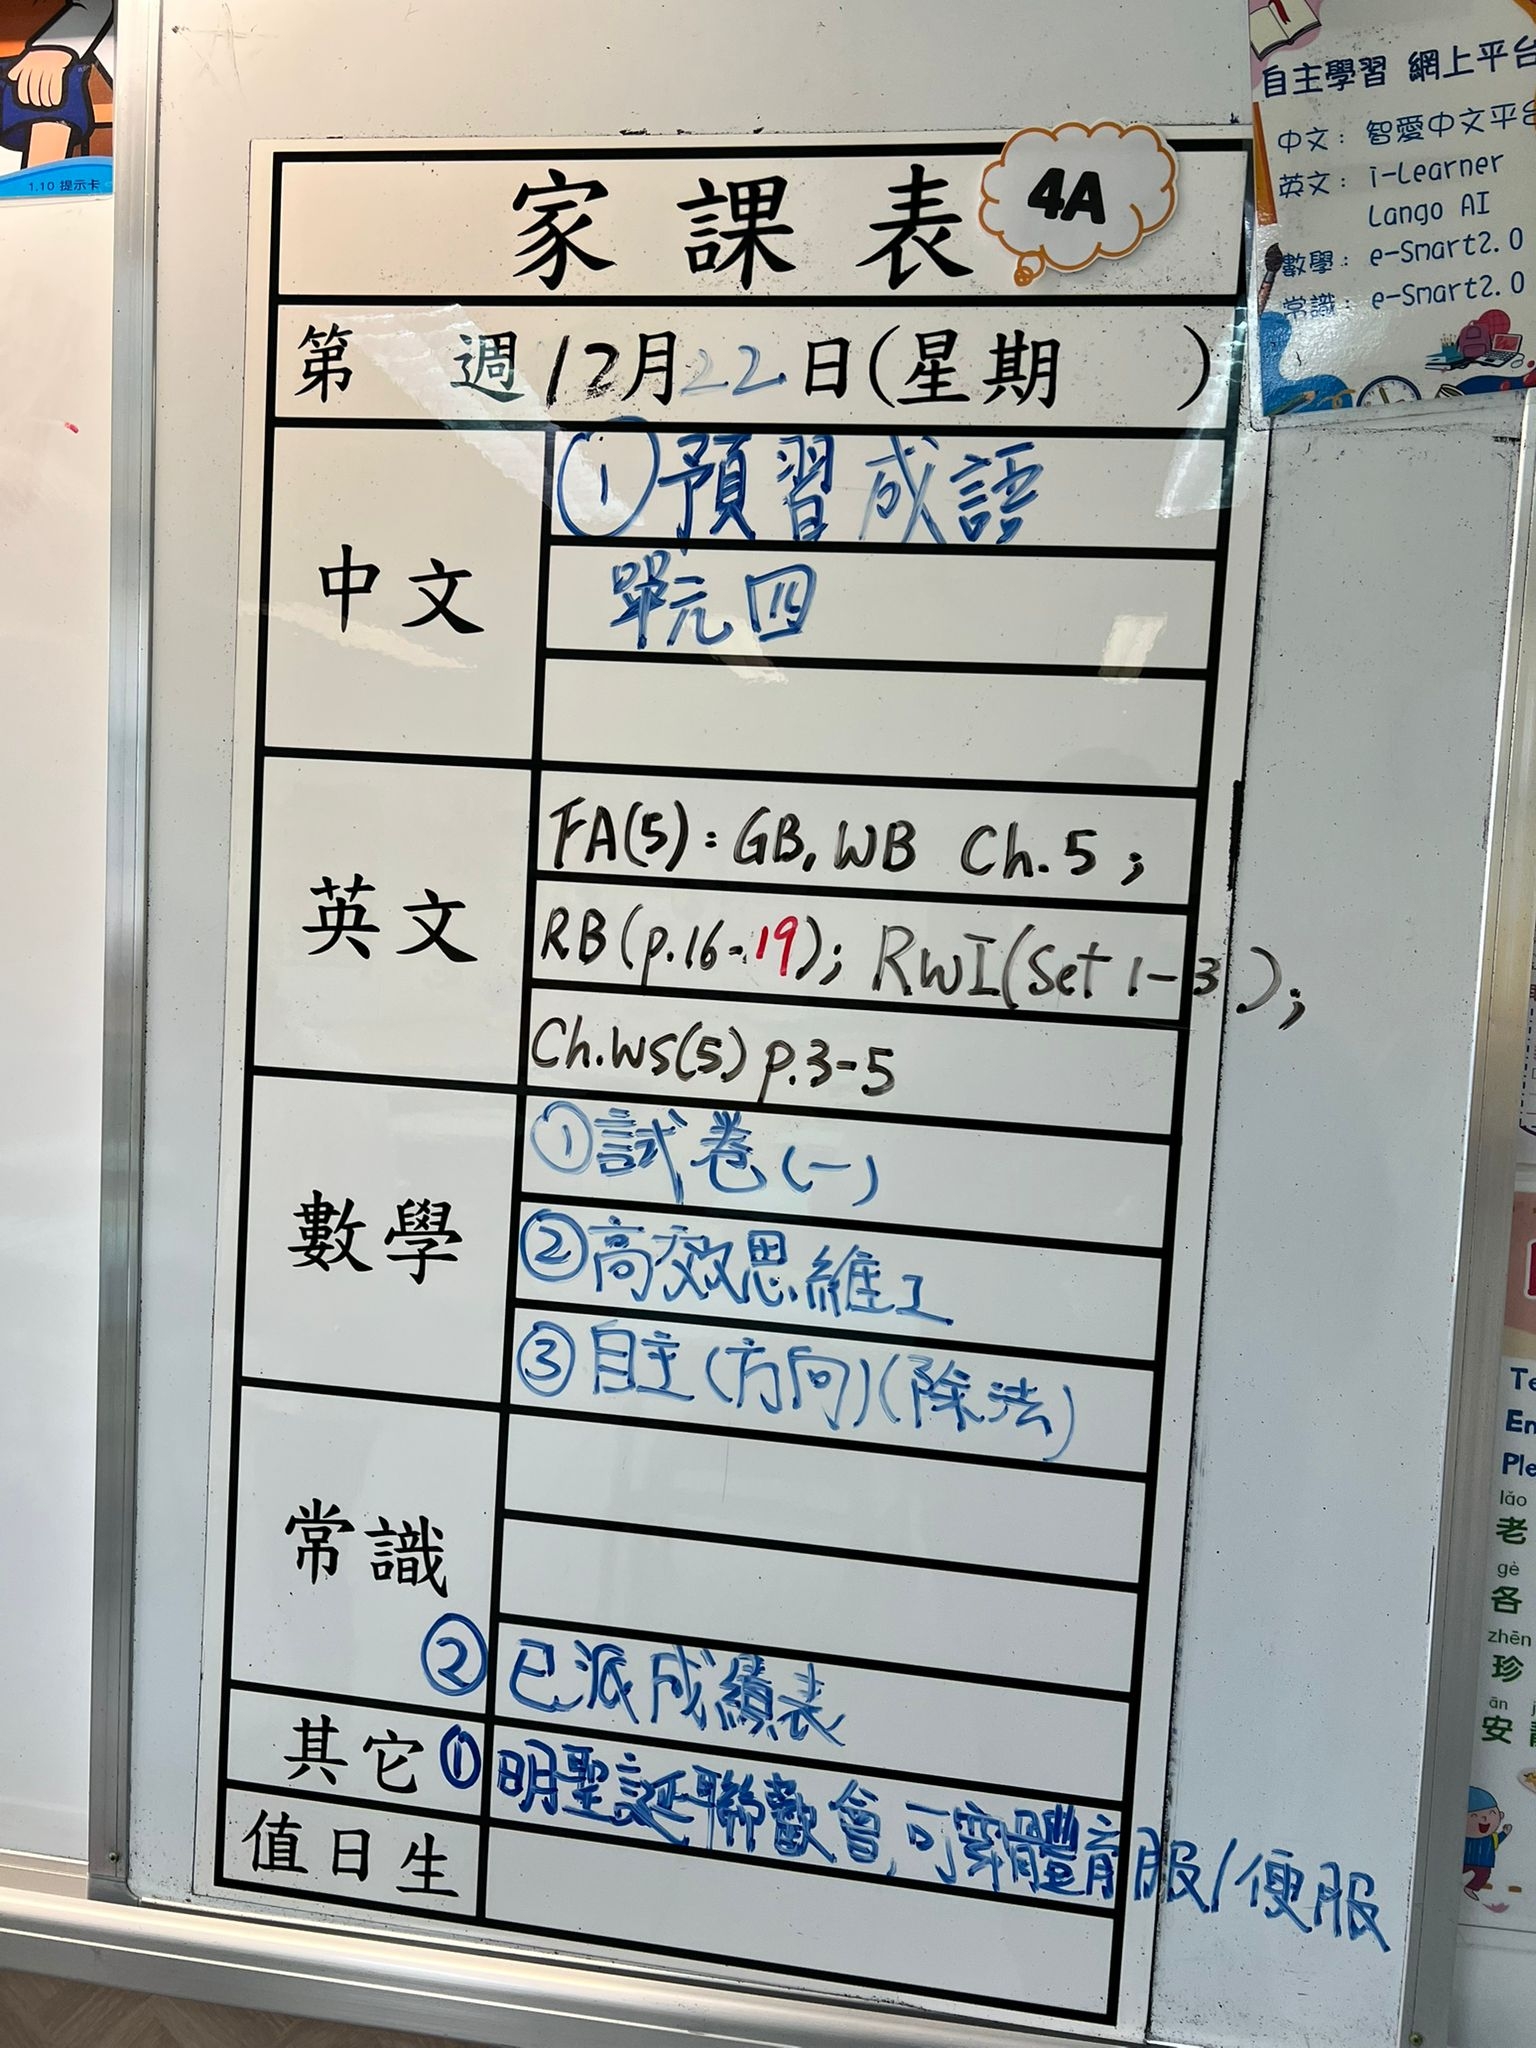 1.10 提示卡
家課表
4A
第 週 12月22日(星期 )
中文
①預習成語
單元四
英文
FA(5): GB, WB Ch.5;
RB(p.16-19); RWI(Set 1-3);
Ch.WS(5) p.3-5
數學
①試卷(一)
②高效思維工
③自主(方向)(除法)
常識
②已派成績表
其它
①明聖誕聯歡會,可穿體育服/便服
值日生
自主學習 網上平台
中文: 智愛中文平台
英文: i-Learner
Lango AI
數學: e-Smart2.0
常識: e-Smart2.0
lǎo
老
gè
各
zhēn
珍
ān
安